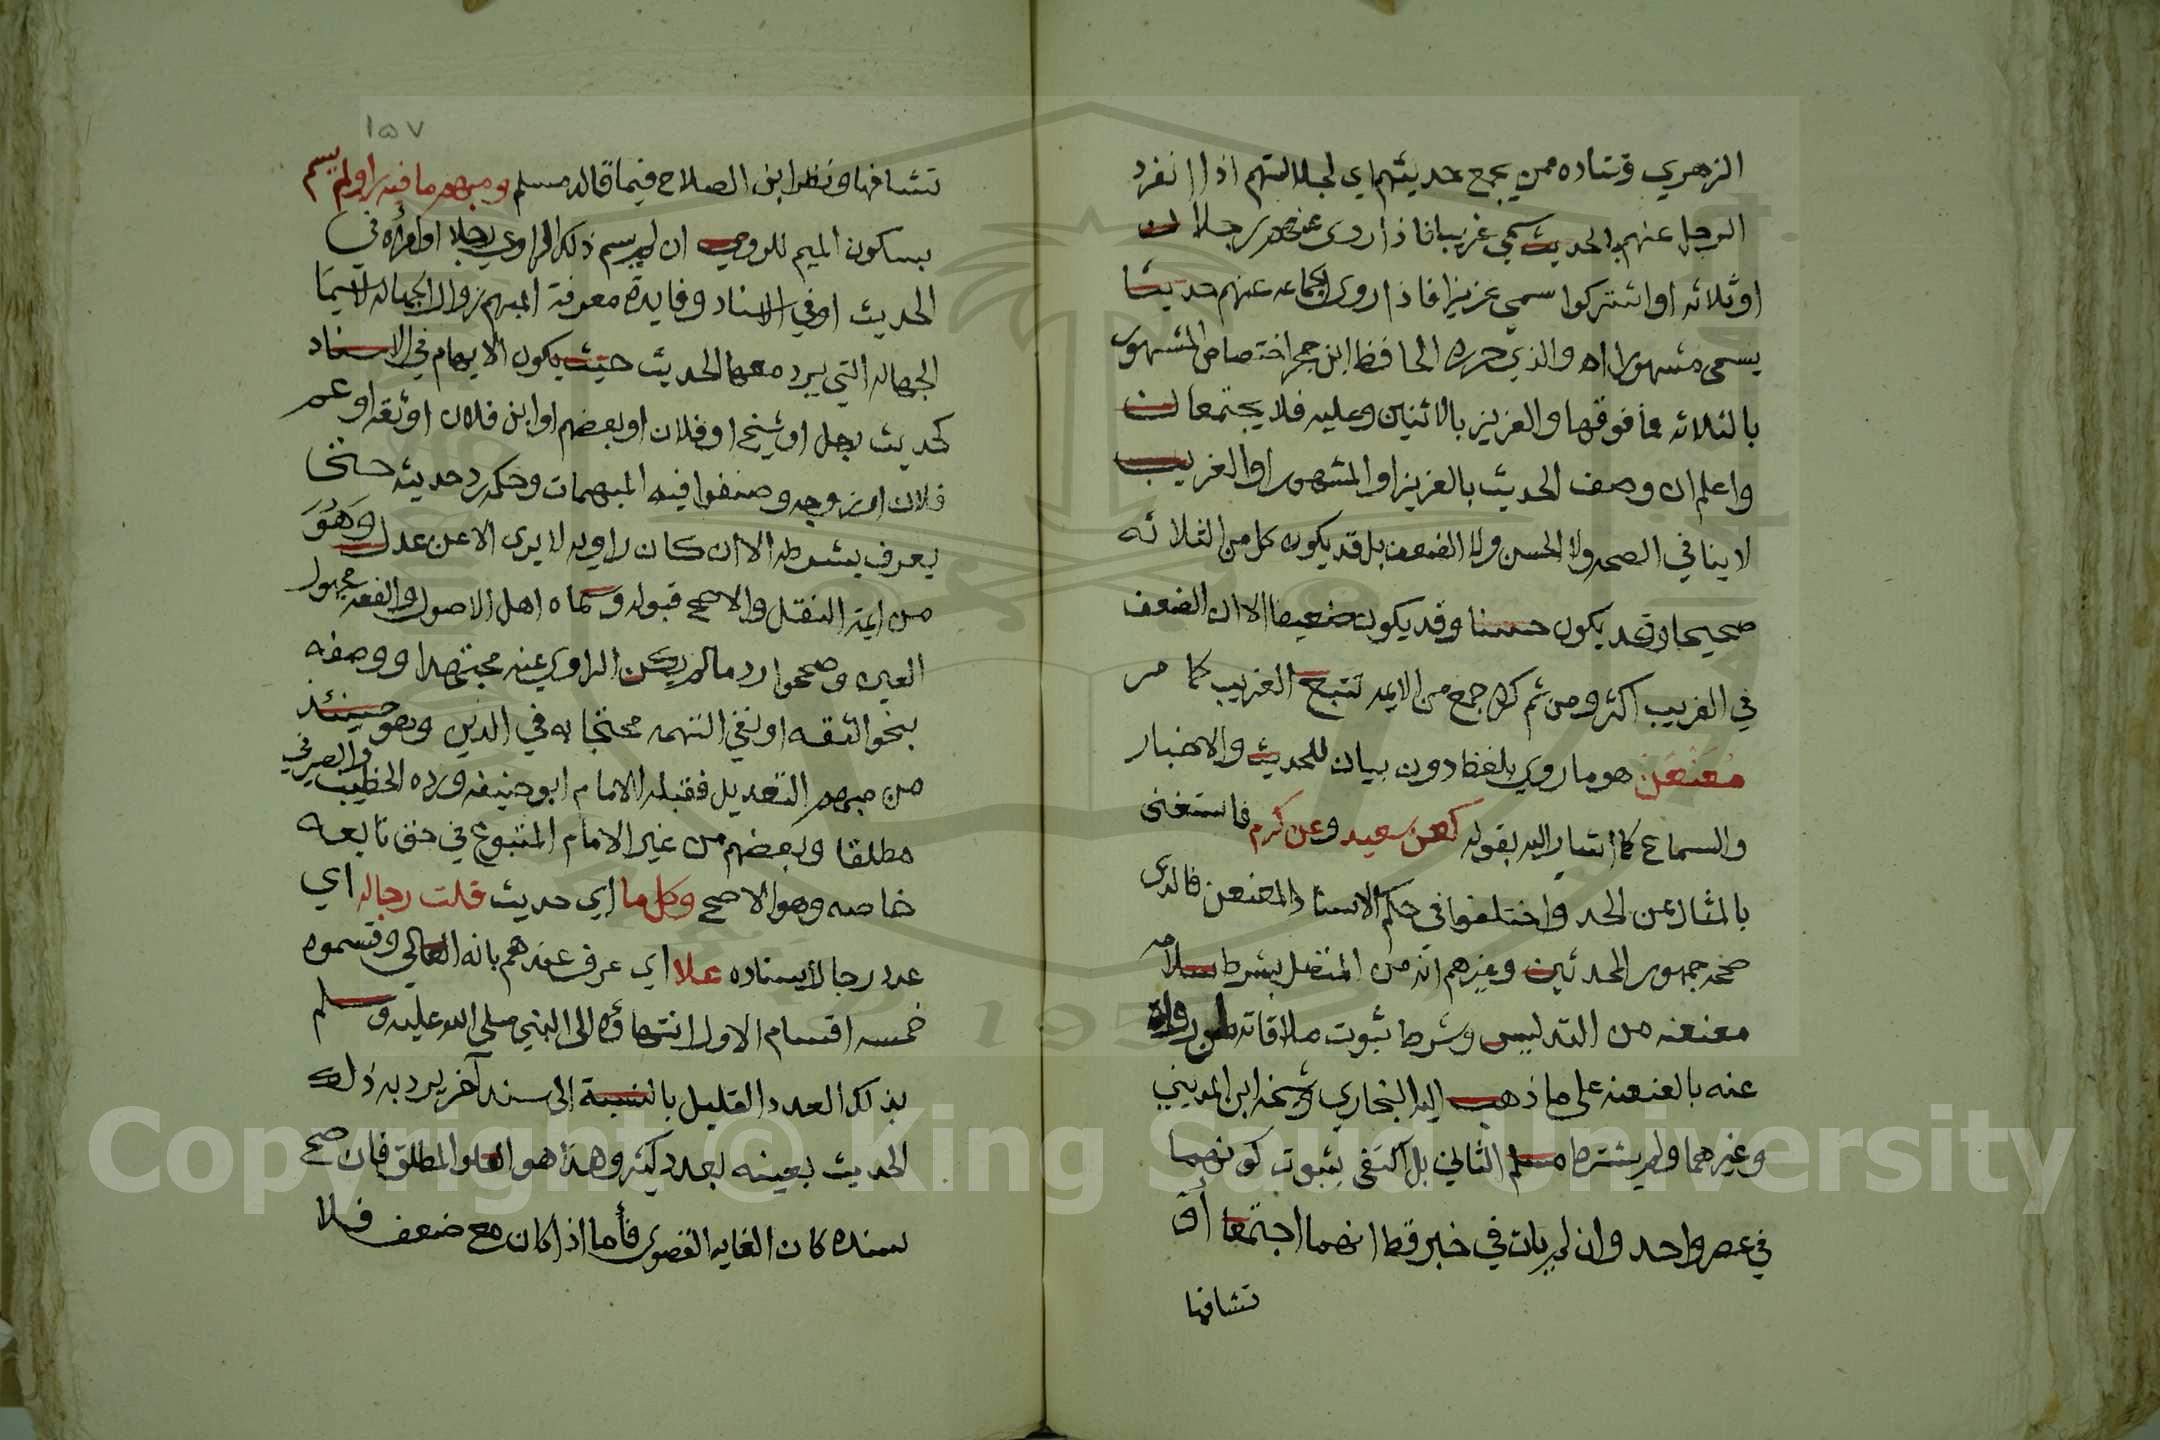 الزهري وقتاده ممن يجمع حديثهم اي لجلالتهم اذا انفرد
الرجل عنهم بالحديث سمي غريبا فاذا روى عنهم رجلان
او ثلاثه او اشتركوا سمي عزيزا فاذا روى الجماعه عنهم حديثا
يسمى مشهورا اه والذي حرره الحافظ ابن حجر اختصاص المشهور
بالثلاثه فما فوقها والعزيز بالاثنين وعليه فلا يجتمعان
واعلم ان وصف الحديث بالعزيز او المشهور او الغريب
لا ينافي الصحه ولا الحسن ولا الضعف بل قد يكون كل من الثلاثه
صحيحا وقد يكون حسنا وقد يكون ضعيفا الا ان الضعف
في الغريب اكثر ومن ثم كره جمع من الايمه تتبع الغريب كما مر
معنعن هو ما روي بلفظ دون بيان للتحديث والاخبار
والسماع كما اشار اليه بقوله كعن سعيد وعن كرم فاستغنى
بالمثال عن الحد واختلفوا في حكم الاسناد المعنعن فالذي
صححه جمهور المحدثين وغيرهم انه من المتصل بشرط سلامه
معنعنه من التدليس وشرط ثبوت ملاقاته لمن رواه
عنه بالعنعنه على ما ذهب اليه البخاري وشيخه ابن المديني
وغيرهما ولم يشترط مسلم الثاني بل اكتفى بثبوت كونهما
في عصر واحد وان لم يات في خبر قط انهما اجتمعا او
تشافها
١٥٧
تشافها ونظر ابن الصلاح فيما قاله مسلم ومبهم ما فيه راو لم يسم
بسكون الميم للروي ان لم يسم ذلك الراوي رجلا او امرأه في
الحديث او في الاسناد وفايدة معرفة المبهم زوال الجهاله لاسيما
الجهاله التي يرد معها الحديث حيث يكون الابهام في الاسناد
كحديث رجل او شيخ او فلان او بعضهم او ابن فلان او ثقه او عم
فلان او زوجه وصنفوا فيه المبهمات وحكمه رد حديثه حتى
يعرف بشرطه الا ان كان راويه لا يرى الا عن عدل وهو
من ايمة النقل والاصح قبوله وسماه اهل الاصول والفقه مجهول
العين وصححوا رد ما لم يكن الراوي عنه مجتهدا ووصفه
بنحو الثقه او نفي التهمه محتجا به في الدين وهو حينئذ
من مبهم التعديل فقبله الامام ابو حنيفه ورده الخطيب والصيرفي
مطلقا وبعضهم من غير الامام المتبوع في حق تابعه
خاصه وهو الاصح وكل ما اي حديث قلت رجاله اي
عدد رجال اسناده علا اي عرف عندهم بانه العالي وقسموه
خمسه اقسام الاول انتهاؤه الى النبي صلى الله عليه وسلم
بذلك العدد القليل بالنسبة الى سند آخر يرد به ذلك
الحديث بعينه بعدد كثير وهذا هو العلو المطلق فان صح
سنده كان الغايه القصوى فأما اذا كان مع ضعف فلا
Copyright © King Saud University
1957